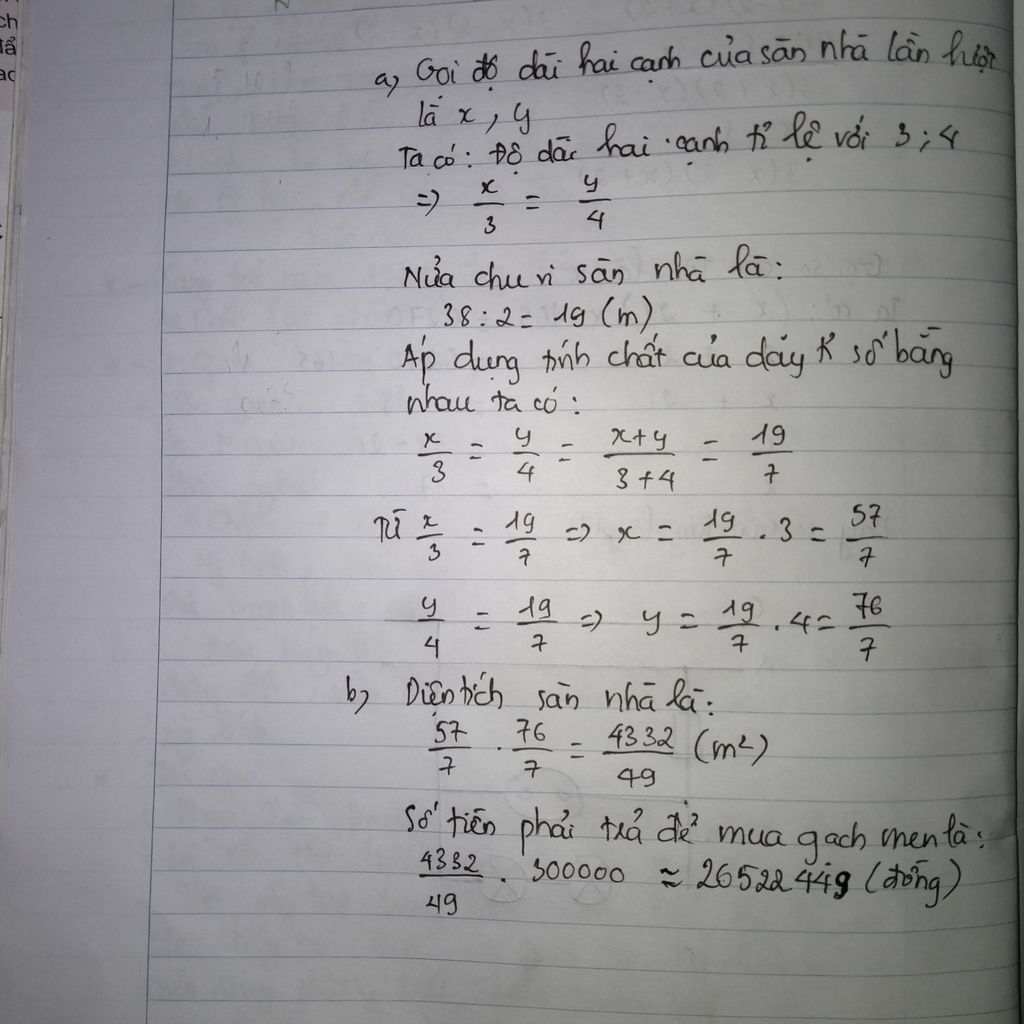 ch
a, Gọi độ dài hai cạnh của sàn nhà lần lượt
là x, y
Ta có: Độ dài hai cạnh tỉ lệ với 3; 4
=> x/3 = y/4
Nửa chu vi sàn nhà là:
38 : 2 = 19 (m)
Áp dụng tính chất của dãy tỉ số bằng
nhau ta có:
x/3 = y/4 = x+y/3+4 = 19/7
Từ x/3 = 19/7 => x = 19/7 . 3 = 57/7
y/4 = 19/7 => y = 19/7 . 4 = 76/7
b, Diện tích sàn nhà là:
57/7 . 76/7 = 4332/49 (m²)
Số tiền phải trả để mua gạch men là:
4332/49 . 300000 ≈ 26522449 (đồng)